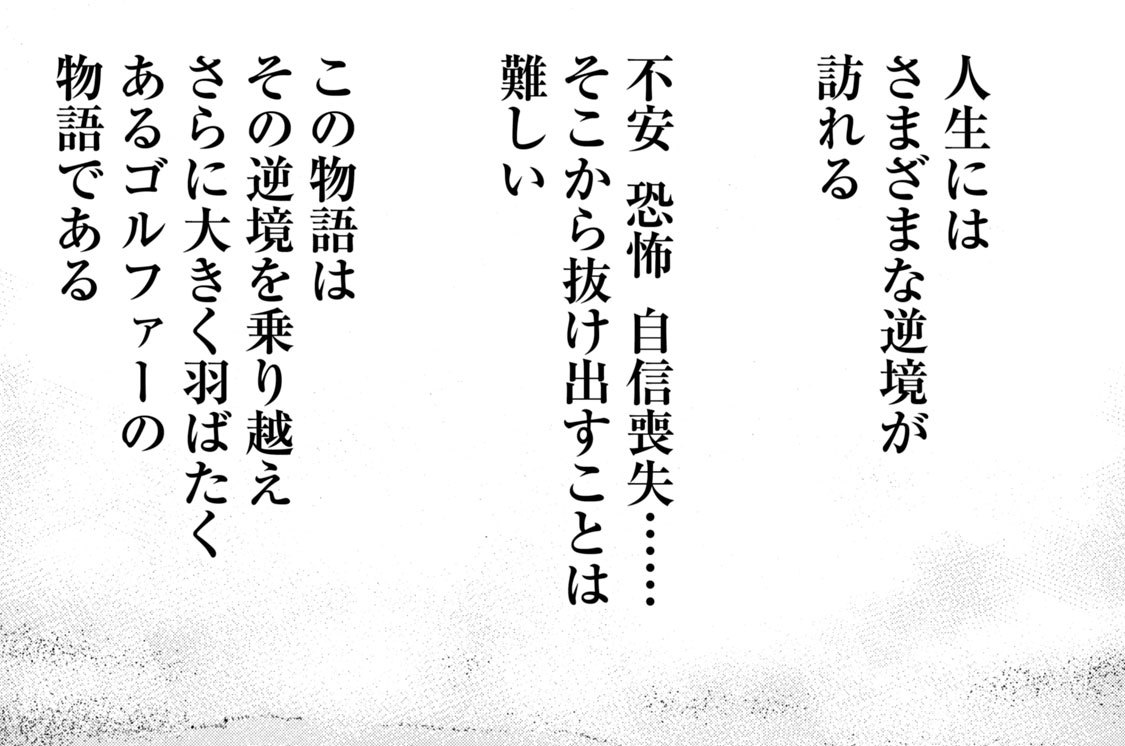 人生には
さまざまな逆境が
訪れる
不安 恐怖 自信喪失……
そこから抜け出すことは
難しい
この物語は
その逆境を乗り越え
さらに大きく羽ばたく
あるゴルファーの
物語である